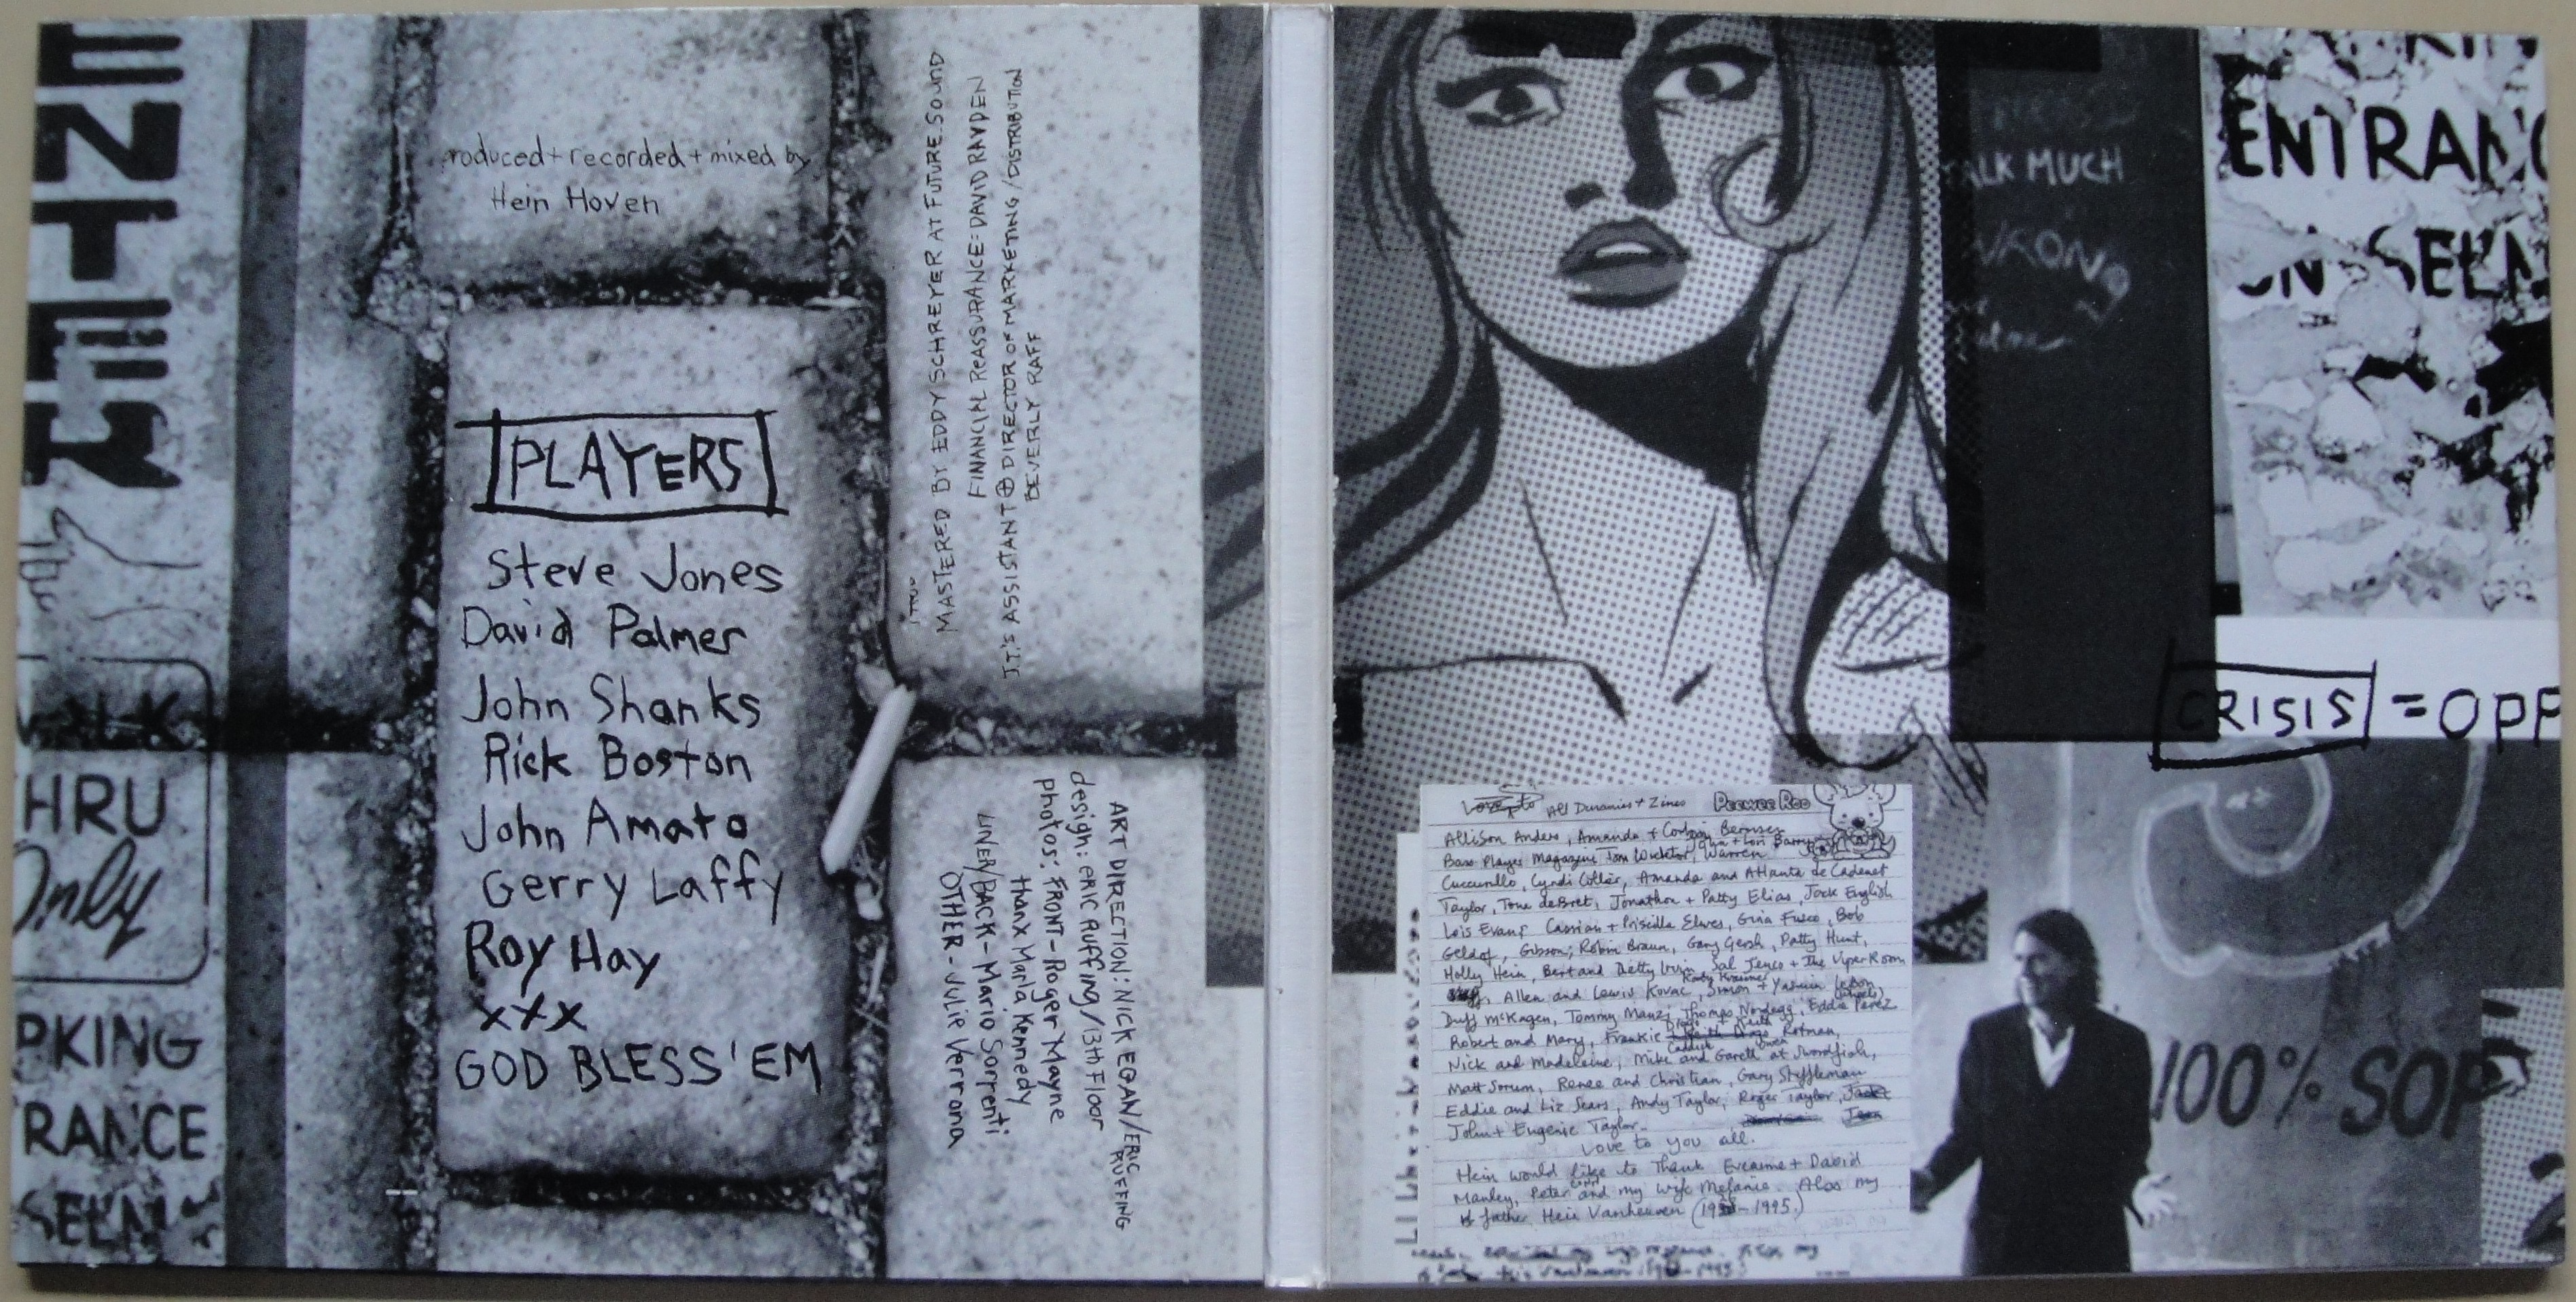 ENTER
WALK
THRU
Only
PRKING
RANCE
SELM
roduced + recorded + mixed by
Hein Hoven
PLAYERS
Steve Jones
David Palmer
John Shanks
Rick Boston
John Amato
Gerry Laffy
Roy Hay
xxx
GOD BLESS 'EM
MASTERED BY EDDY SCHREYER AT FUTURE SOUND
FINANCIAL REASSURANCE: DAVID RAVDEN
IT'S ASSISTANT ⊕ DIRECTOR OF MARKETING / DISTRIBUTION
BEVERLY RAFF
ART DIRECTION: NICK EGAN/ERIC RUFFING
design: ERIC RUFFING / 13th Floor
photos: FRONT - Roger Mayne
thanx Marla Kennedy
INNER/BACK - Mario Sorrenti
OTHER - Julie Verrona
ALK MUCH
WRONG
ENTRANC
ON SELM
CRISIS = OPP
100% SOP
Love to All Duranies + Zines Peewee Roo
Allison Anders, Amanda + Corbin Bernsen
Bass Player Magazine, Warren
Cuccurullo, Cyndi Collier, Amanda and Atlanta de Cadenet
Taylor, Tone deBret, Jonathon + Patty Elias, Jock English
Lois Evans Cassian + Priscilla Elwes, Guia Fusco, Bob
Geldof, Gibson, Robin Braun, Gary Gersh, Patty Hunt,
Holly Hein, Bert and Sal Jenco + The Viper Room
Allen and Lewis Kovac, Simon + Yasmin LeBon
Duff McKagen, Tommy Manzi, Thomas Nordegg, Eddie Perez
Robert and Mary, Frankie Rotman,
Nick and Madeleine, Mike and Gareth at Swordfish,
Matt Sorum, Renee and Christian, Gary Styffleman
Eddie and Liz Sears, Andy Taylor, Roger Taylor,
John + Eugenie Taylor.
Love to you all.
Hein would like to Thank Evearne + David
Manley, Peter and my wife Melanie. Also my
father Hein Vanheuven (19 - 1995.)